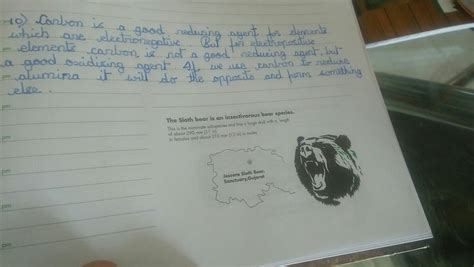 10) Carbon is a good reducing agent for elements
which are electronegative. But for electropositive
elements carbon is not a good reducing agent, but
a good oxidising agent. If we use carbon to reduce
alumina it will do the opposite and form something
else.
pm
pm
pm
pm
pm
pm
The Sloth bear is an insectivorous bear species.
This is the nominate subspecies and has a large skull with a length
of about 290 mm (11 in)
in females and about 310 mm (12 in) in males
Jessore Sloth Bear
Sanctuary, Gujarat